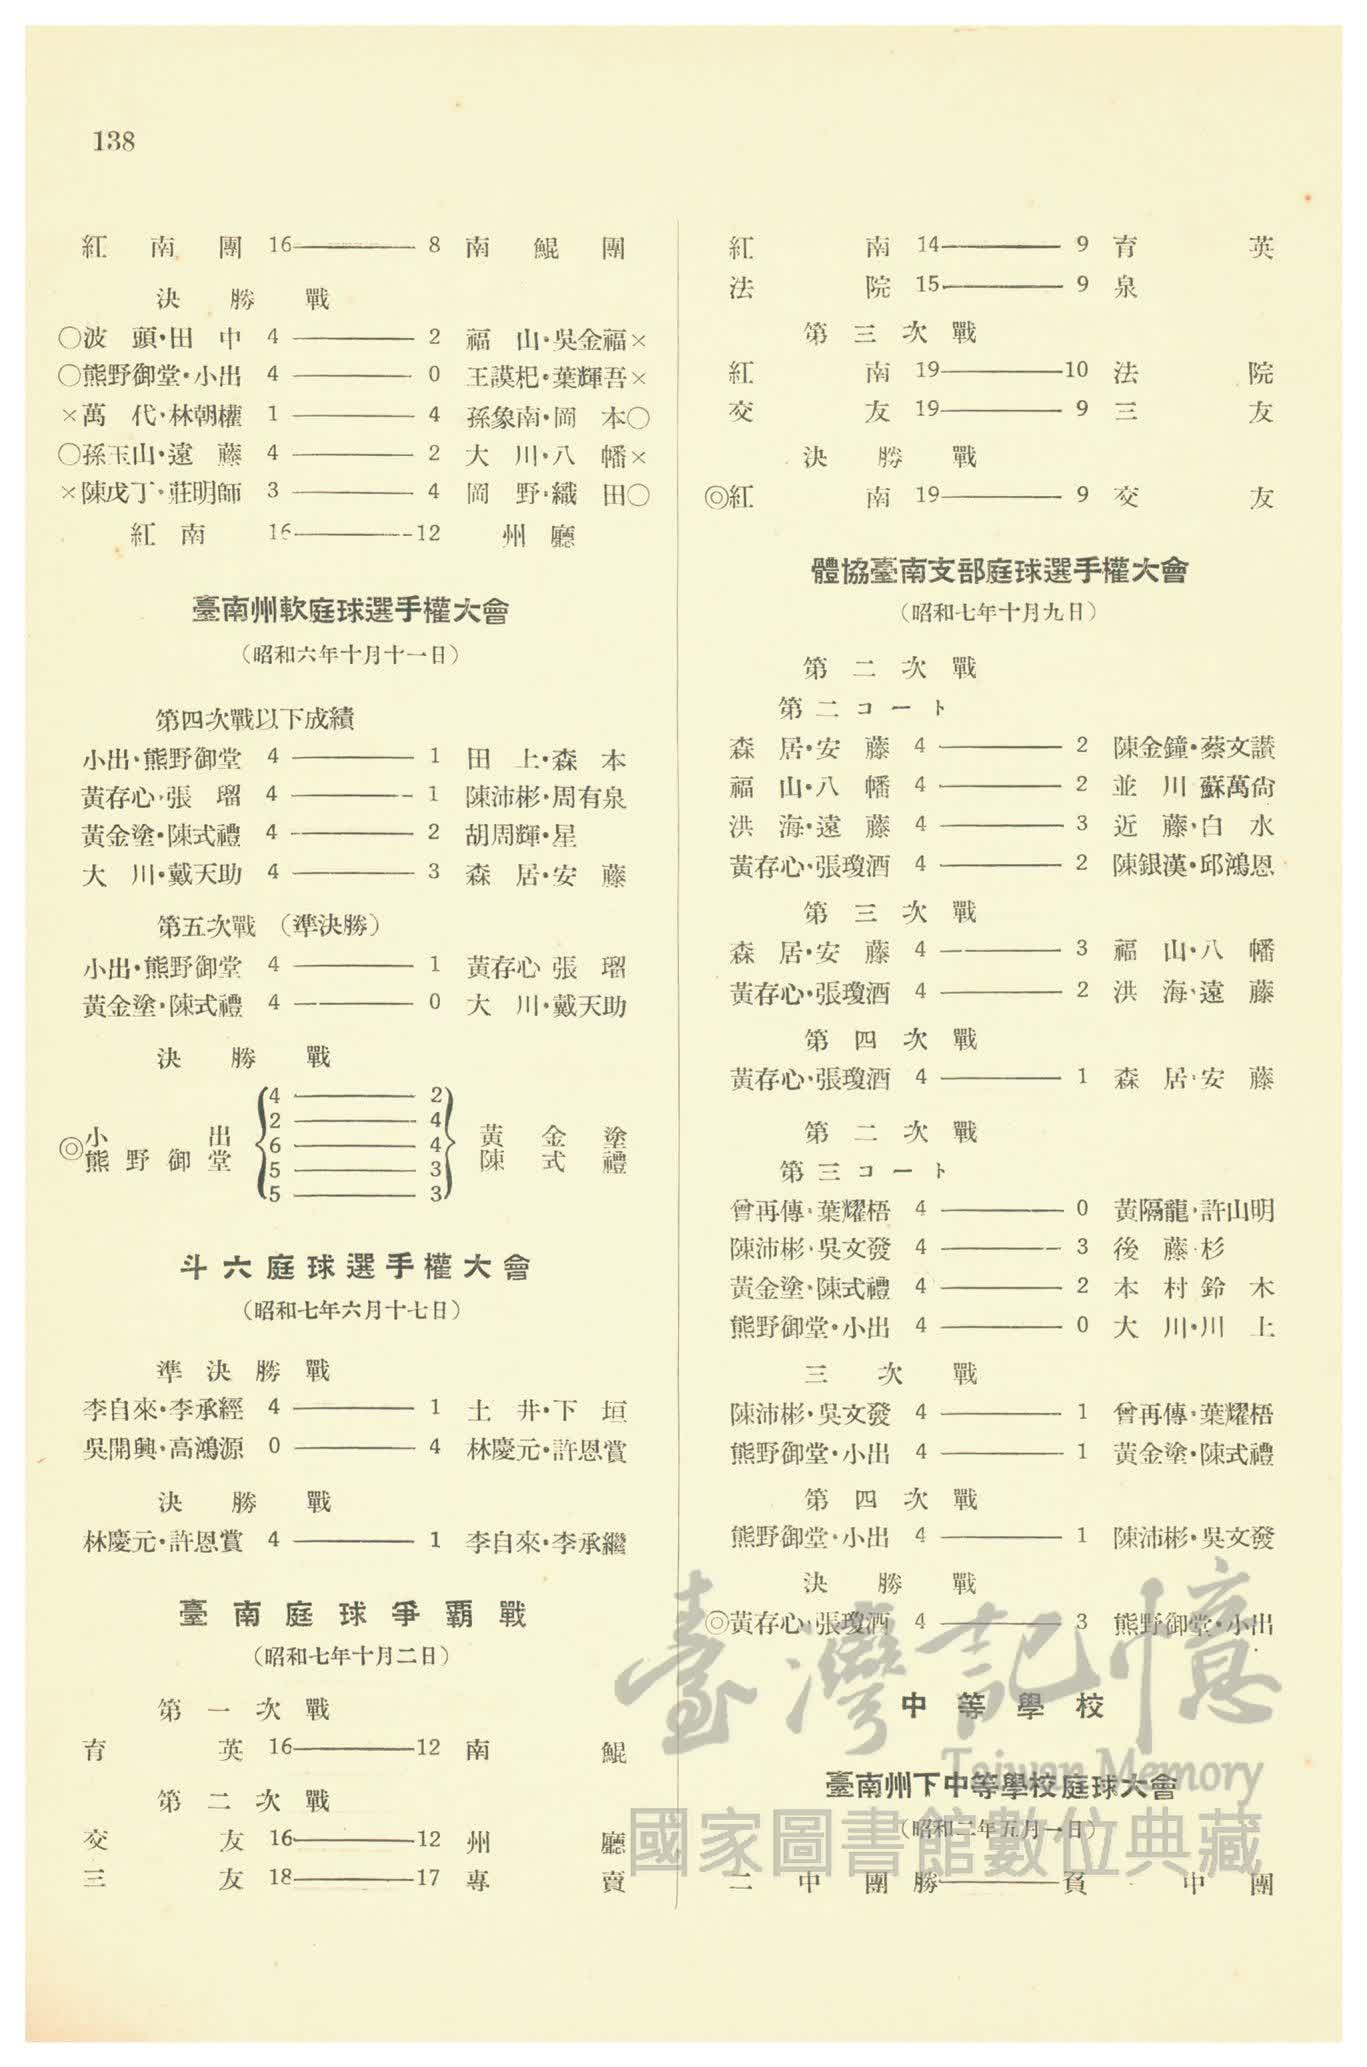 138
紅南團 16——8 南鯤團
決勝戰
○波頭・田中 4——2 福山・吳金福×
○熊野御堂・小出 4——0 王謨杞・葉輝吾×
×萬代・林朝權 1——4 孫象南・岡本○
○孫玉山・遠藤 4——2 大川・八幡×
×陳戊丁・莊明師 3——4 岡野・織田○
紅南 16——12 州廳
臺南州軟庭球選手權大會
(昭和六年十月十一日)
第四次戰以下成績
小出・熊野御堂 4——1 田上・森本
黃存心・張瑠 4——1 陳沛彬・周有泉
黃金塗・陳式禮 4——2 胡周輝・星
大川・戴天助 4——3 森居・安藤
第五次戰(準決勝)
小出・熊野御堂 4——1 黃存心 張瑠
黃金塗・陳式禮 4——0 大川・戴天助
決勝戰
4——2
2——4
◎小出 熊野御堂 6——4 黃金塗 陳式禮
5——3
5——3
斗六庭球選手權大會
(昭和七年六月十七日)
準決勝戰
李自來・李承經 4——1 土井・下垣
吳開興・高鴻源 0——4 林慶元・許恩賞
決勝戰
林慶元・許恩賞 4——1 李自來・李承繼
臺南庭球爭霸戰
(昭和七年十月二日)
第一次戰
育英 16——12 南鯤
第二次戰
交友 16——12 州廳
三友 18——17 專賣
紅南 14——9 育英
法院 15——9 泉
第三次戰
紅南 19——10 法院
交友 19——9 三友
決勝戰
◎紅南 19——9 交友
體協臺南支部庭球選手權大會
(昭和七年十月九日)
第二次戰
第二コート
森居・安藤 4——2 陳金鐘・蔡文讃
福山・八幡 4——2 並川 蘇萬尙
洪海・遠藤 4——3 近藤・白水
黃存心・張瓊酒 4——2 陳銀漢・邱鴻恩
第三次戰
森居・安藤 4——3 福山・八幡
黃存心・張瓊酒 4——2 洪海・遠藤
第四次戰
黃存心・張瓊酒 4——1 森居・安藤
第二次戰
第三コート
曾再傳・葉耀梧 4——0 黃隔龍・許山明
陳沛彬・吳文發 4——3 後藤・杉
黃金塗・陳式禮 4——2 本村 鈴木
熊野御堂・小出 4——0 大川・川上
三次戰
陳沛彬・吳文發 4——1 曾再傳・葉耀梧
熊野御堂・小出 4——1 黃金塗・陳式禮
第四次戰
熊野御堂・小出 4——1 陳沛彬・吳文發
決勝戰
◎黃存心・張瓊酒 4——3 熊野御堂・小出
中等學校
臺南州下中等學校庭球大會
(昭和二年五月一日)
二中團 勝——負 中團
臺灣記憶
Taiwan Memory
國家圖書館數位典藏